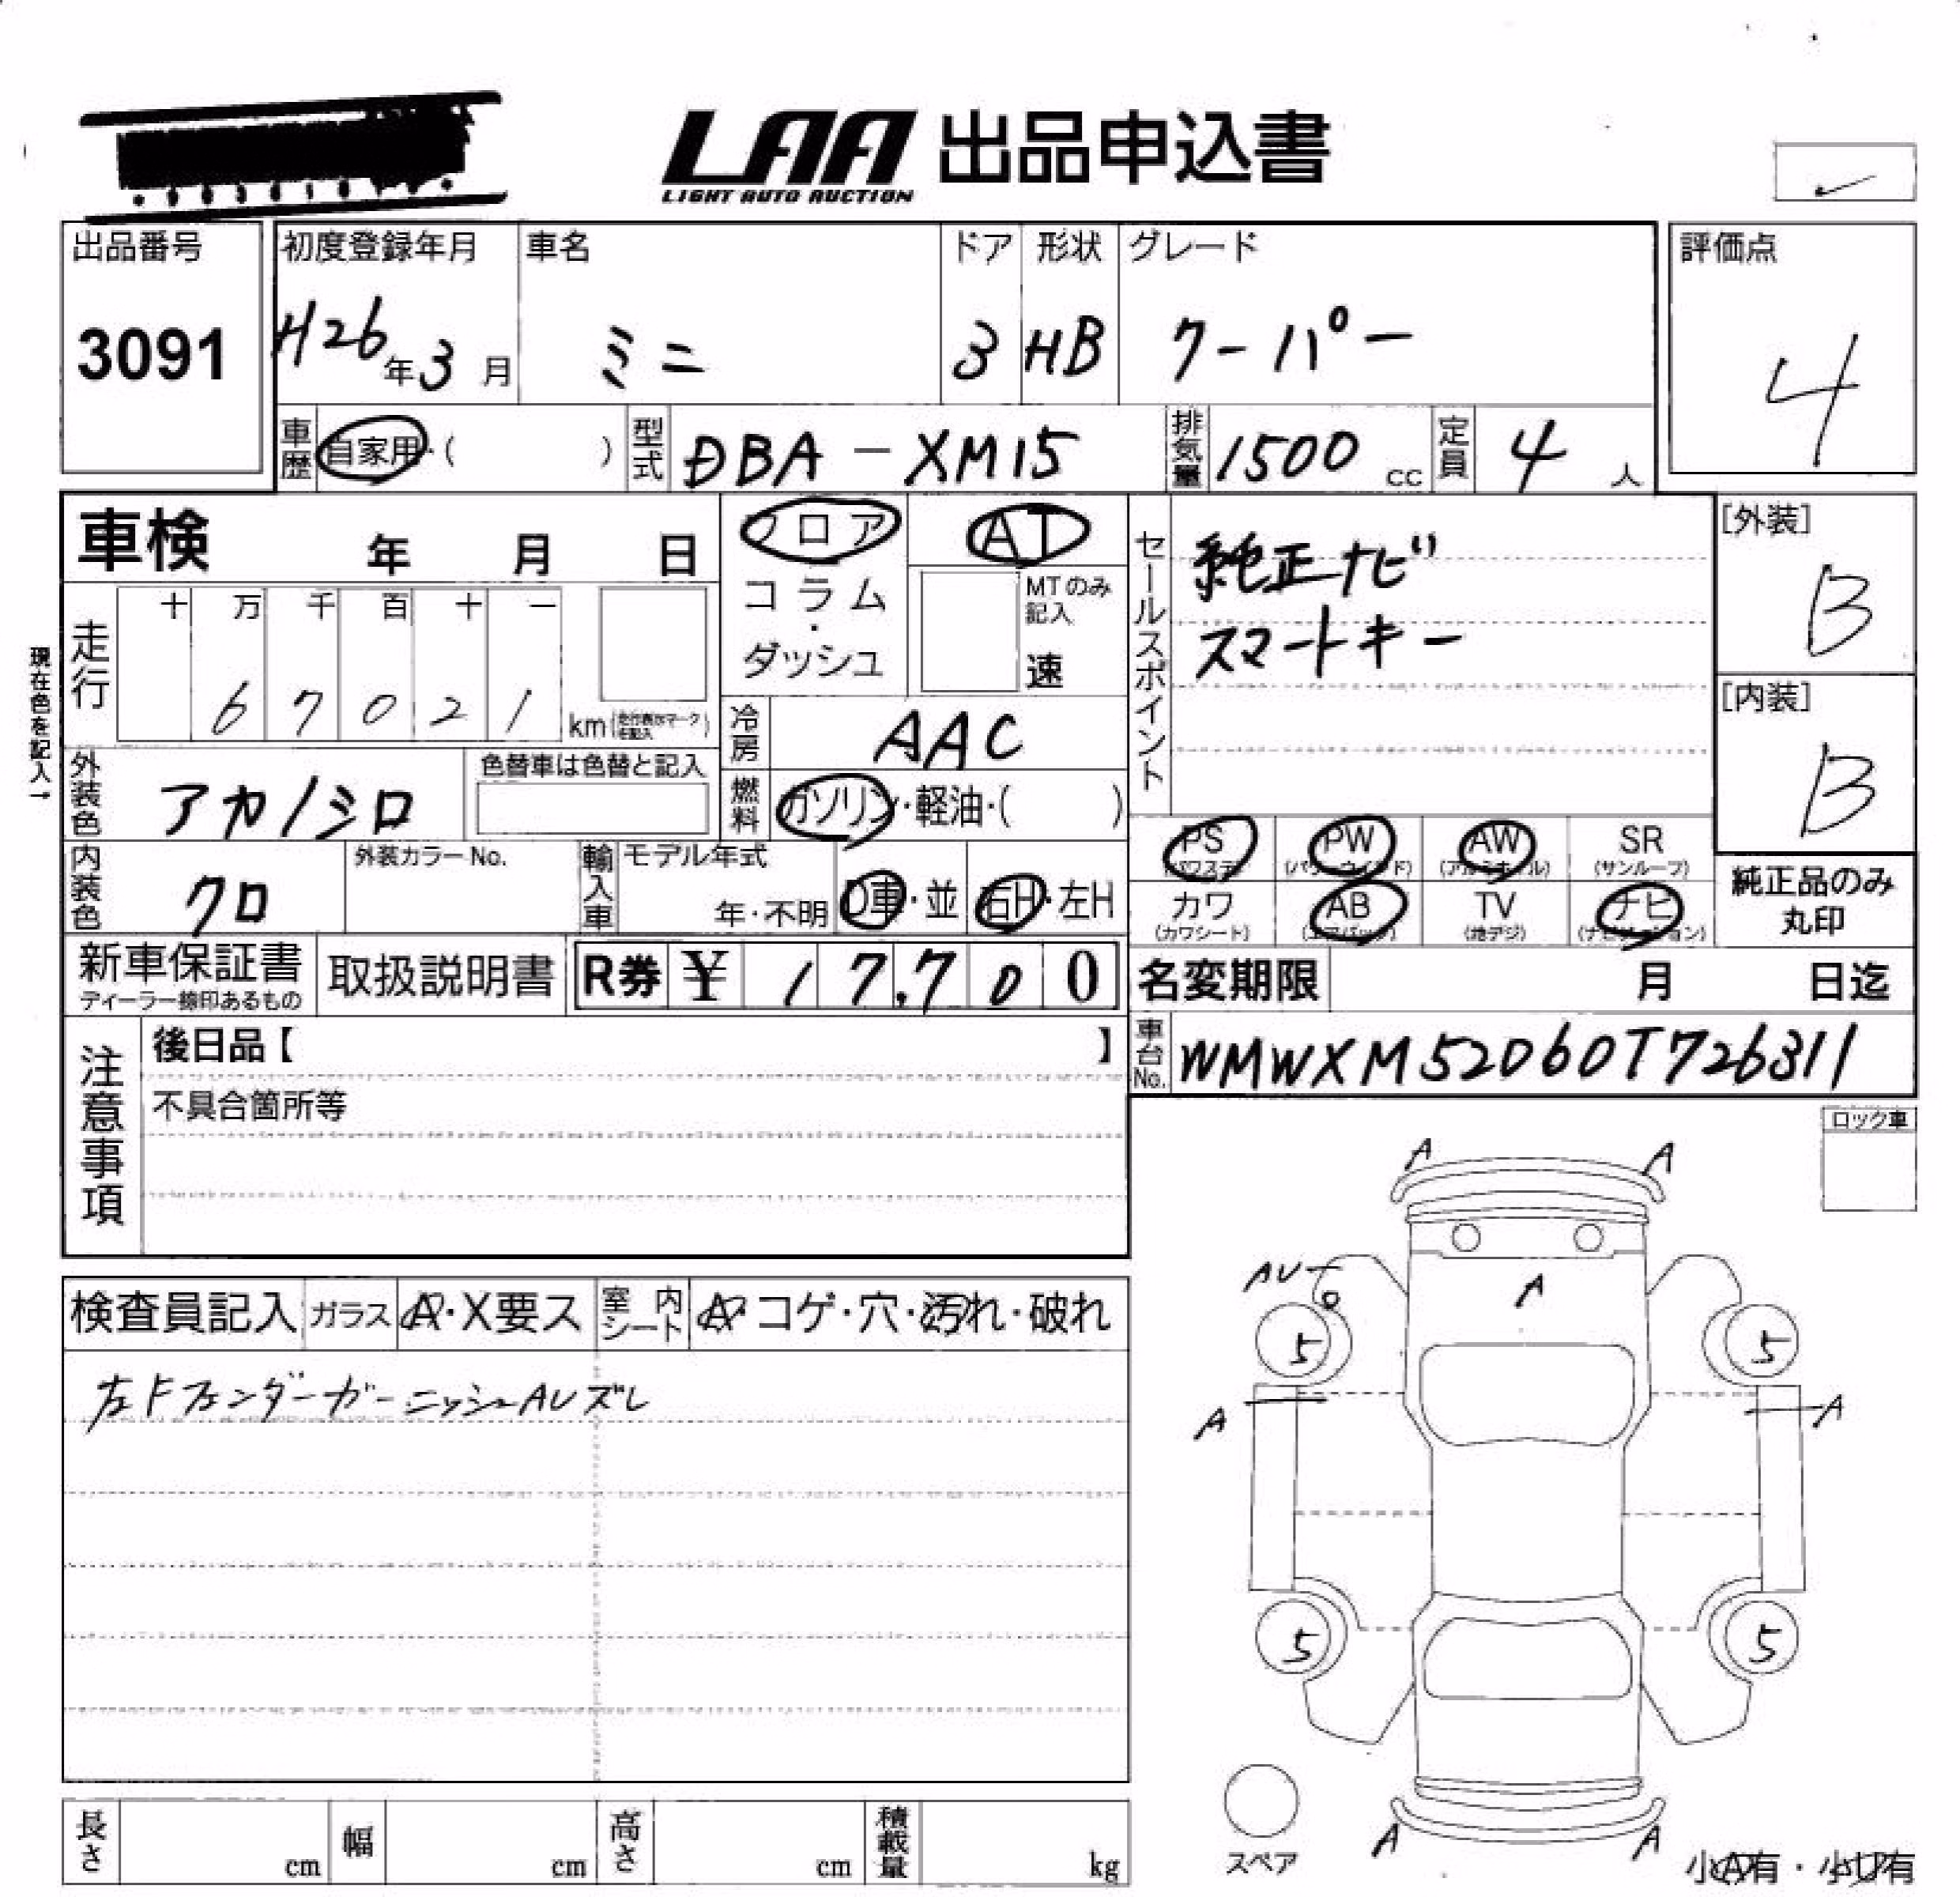 LAA 出品申込書
LIGHT AUTO AUCTION
出品番号
3091
初度登録年月
H26年3月
車名
ミニ
ドア
3
形状
HB
グレード
クーパー
評価点
4
車歴 自家用・( )
型式 DBA-XM15
排気量 1500 cc
定員 4 人
車検 年 月 日
フロア
コラム
・
ダッシュ
AT
MTのみ
記入
速
セールスポイント
純正ナビ
スマートキー
[外装]
B
[内装]
B
現在色を記入→
走行
十 万 千 百 十 一
6 7 0 2 1 km(走行表示マーク)
を記入
冷房 AAC
燃料 ガソリン・軽油・( )
外装色 アカ/シロ
色替車は色替と記入
内装色 クロ
外装カラーNo.
輸入車
モデル年式
年・不明
D車・並
右H・左H
PS
(パワステ)
PW
(パワーウインド)
AW
(アルミホイル)
SR
(サンルーフ)
カワ
(カワシート)
AB
(エアバック)
TV
(地デジ)
ナビ
(ナビゲーション)
純正品のみ
丸印
新車保証書
ディーラー捺印あるもの
取扱説明書
R券 ¥ 17.700
名変期限 月 日迄
車台No. WMWXM52060T726311
注意事項
後日品【 】
不具合箇所等
ロック車
検査員記入
ガラス A・X要ス
室内シート A・コゲ・穴・汚れ・破れ
左Fフェンダーガーニッシュ AUズレ
A A
AU
A
5 5
A A
5 5
A A
スペア
小A有・小U有
長さ cm
幅 cm
高さ cm
積載量 kg